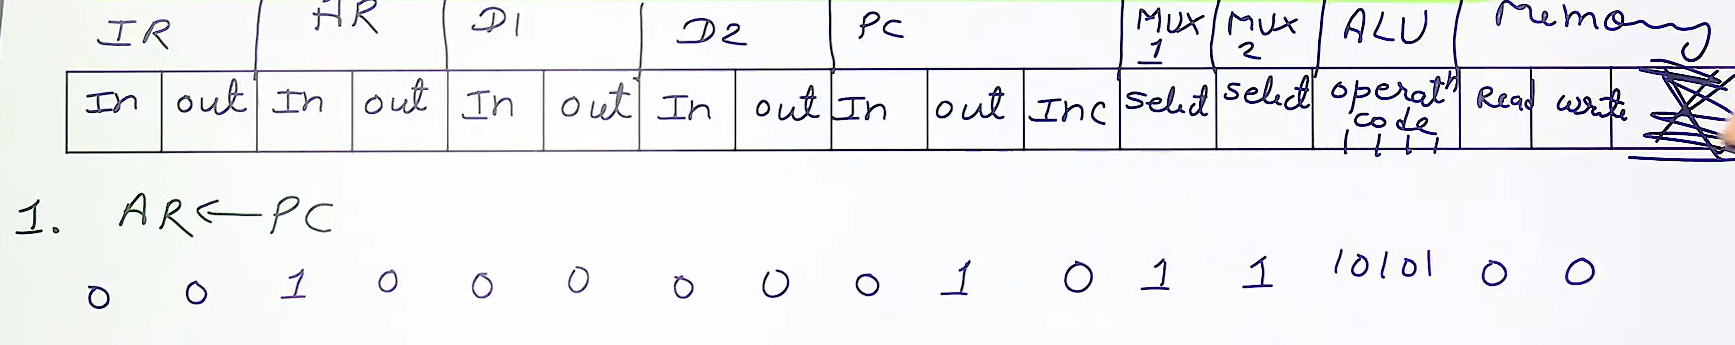 IR AR D1 D2 PC MUX 1 MUX 2 ALU Memory
In out In out In out In out In out Inc Select Select operatn code Read write
1. AR ← PC
0 0 1 0 0 0 0 0 0 1 0 1 1 10101 0 0